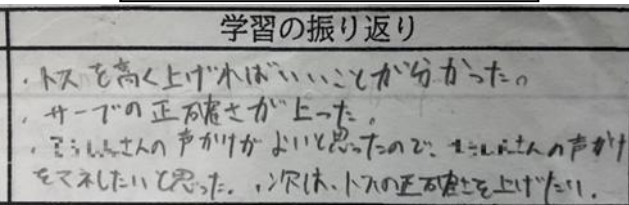 学習の振り返り
・トスを高く上げればいいことが分かった。
・サーブの正確さが上った。
・さんの声かけがよいと思ったので、さんの声かけ
をマネしたいと思った。・次は、トスの正確さを上げたい。